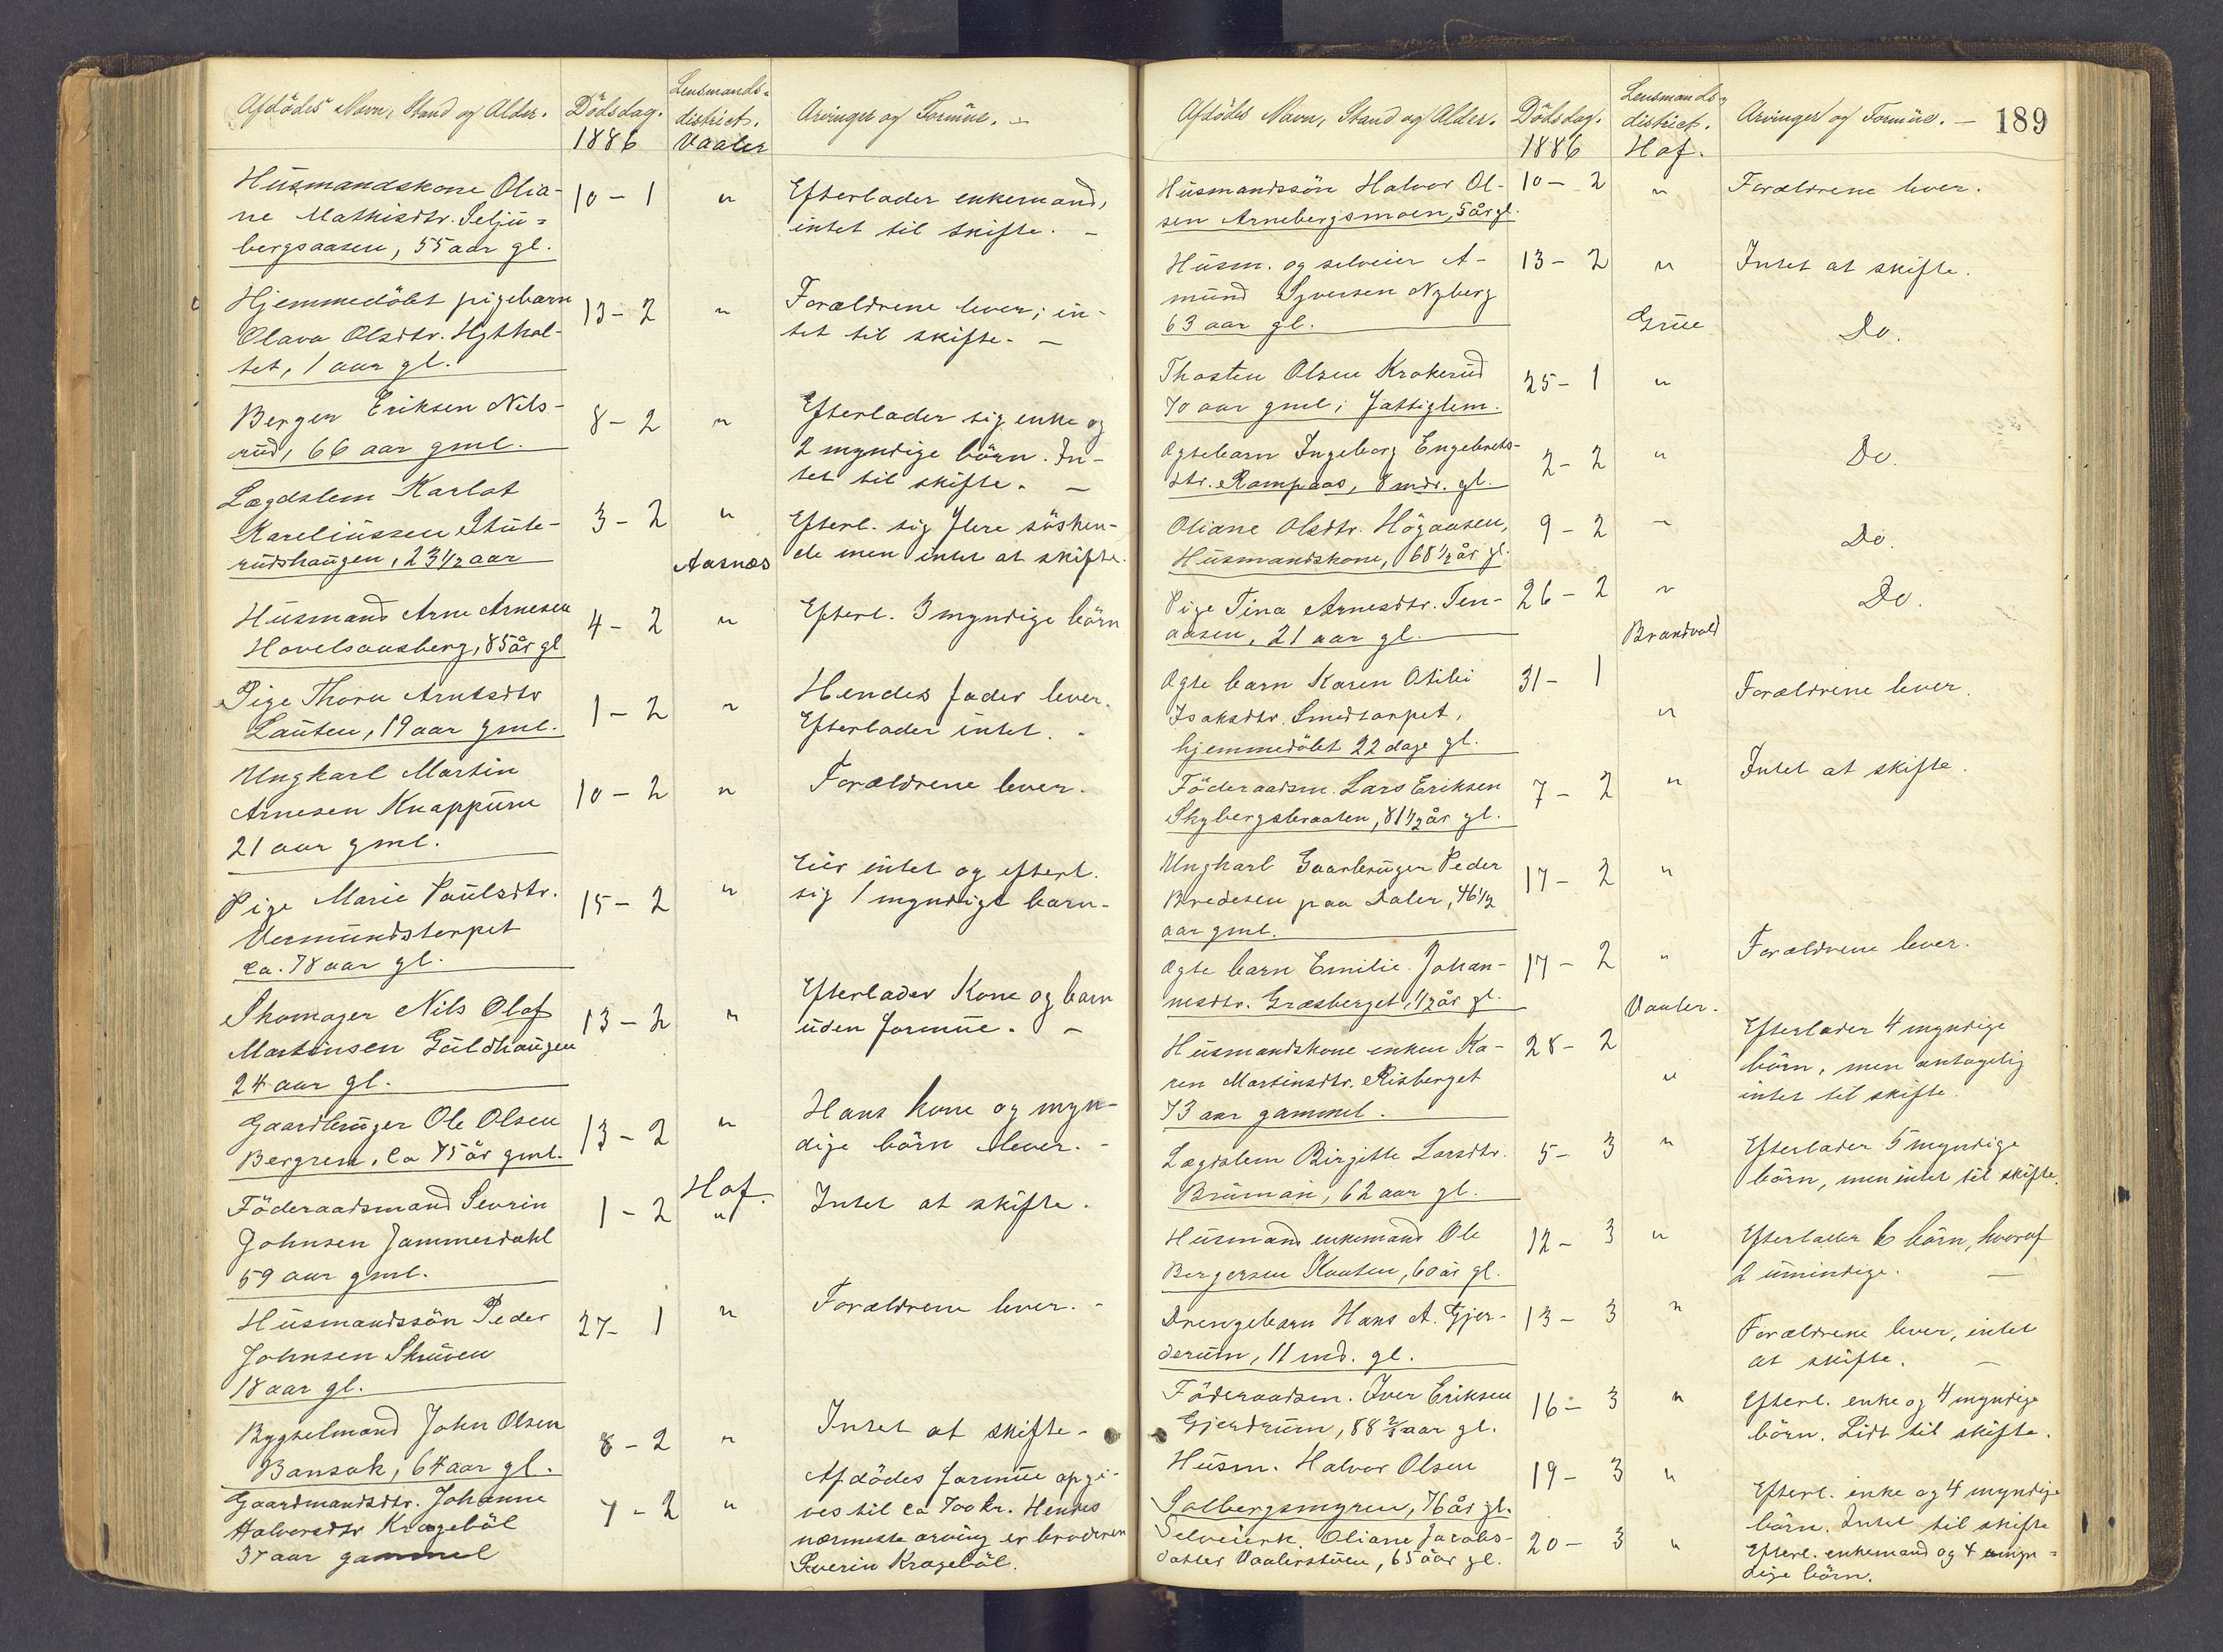 Afdödes Navn, Stand og Alder.
Dödsdag.
1886
Lensmands-
district.
Vaaler
Arvinger og Formue. -
Husmandskone Olia-
ne Mathisdtr. Selju-
bergsaasen, 55 aar gl.
10 - 1
"
Efterlader enkemand,
intet til skifte. -
Hjemmedöbt pigebarn
Olava Olsdtr. Hythol-
tet, 1 aar gl.
13 - 2
"
Forældrene lever; in-
tet til skifte. -
Berger Eriksen Nils-
rud, 66 aar gml.
8 - 2
"
Efterlader sig enke og
2 myndige börn. In-
tet til skifte. -
Lægdslem Karlot
Kareliussen Stute-
rudshaugen, 23 1/2 aar
3 - 2
"
Efterl. sig flere sösken-
de men intet at skifte.
Aasnæs
Husmand Arne Arnesen
Hovelsaasberg, 85 år gl
4 - 2
"
Efterl. 3 myndige börn
Pige Thora Arntsdtr
Lauten, 19 aar gml.
1 - 2
"
Hendes fader lever.
Efterlader intet. -
Ungkarl Martin
Arnesen Knappum
21 aar gml.
10 - 2
"
Forældrene lever.
Pige Marie Paulsdtr.
Vermundstorpet
ca. 78 aar gl.
15 - 2
"
Eier intet og efterl.
sig 1 myndigt barn.
Skomager Nils Olaf
Martinsen Guldhaugen
24 aar gl.
13 - 2
"
Efterlader Kone og barn
uden formue. -
Gaardbruger Ole Olsen
Bergrem, ca 75 år gml.
13 - 2
"
Hans kone og myn-
dige börn lever. -
Hof.
Föderaadsmand Severin
Johnsen Jammerdahl
59 aar gml.
1 - 2
"
Intet at skifte.
Husmandssön Peder
Johnsen Skuven
18 aar gl.
27 - 1
"
Forældrene lever. -
Bygselmand John Olsen
Bansak, 64 aar gl.
8 - 2
"
Intet at skifte -
Gaardmandsdtr. Johanne
Halvorsdtr Krageböl
37 aar gammel
7 - 2
"
Afdödes formue opgi-
ves til ca 700 kr. Hendes
nærmeste arving er broderen
Severin Krageböl.
Afdödes Navn, Stand og Alder.
Dödsdag.
1886
Lensmands-
district.
Hof.
Arvinger og Formue. -
189
Husmandssön Halvor Ol-
sen Arnebergsmoen, 5 år gl.
10 - 2
"
Forældrene lever.
Husm. og selveier A-
mund Syversen Nyberg
63 aar gl.
13 - 2
"
Intet at skifte.
Grue
Thosten Olsen Krokerud
70 aar gml; fattiglem.
25 - 1
"
Do.
Ægtebarn Ingeborg Engebrets-
dtr. Rompaas, 8 mdr. gl.
2 - 2
"
Do.
Oliane Olsdtr. Högaasen,
Husmandskone, 68 1/2 år gl.
9 - 2
"
Do.
Pige Tina Arnesdtr. Ten-
aasen, 21 aar gl.
26 - 2
"
Do.
Brandvold
Ægte barn Karen Otilie
Isaksdtr. Smedtorpet,
hjemmedöbt 22 dage gl.
31 - 1
"
Forældrene lever.
Föderaadsm. Lars Eriksen
Skybergsbraaten, 81 1/2 år gl.
7 - 2
"
Intet at skifte.
Ungkarl Gaarbruger Peder
Bredesen paa Daler, 46 1/2
aar gml.
17 - 2
"
Ægte barn Emilie Johan-
nesdtr. Græsberget, 1/2 år gl.
17 - 2
"
Forældrene lever.
Vaaler.
Husmandskone enken Ka-
ren Martinsdtr. Risberget
73 aar gammel.
28 - 2
"
Efterlader 4 myndige
börn, men antagelig
intet til skifte.
Lægdslem Birgitte Larsdtr.
Bruman, 62 aar gl.
5 - 3
"
Efterlader 5 myndige
börn, men intet til skifte.
Husmand enkemand Ole
Bergersen Kouten, 60 år gl.
12 - 3
"
Efterlader 6 börn, hvoraf
2 umindige. -
Drengebarn Hans A. Gjer-
derum, 11 md. gl.
13 - 3
"
Forældrene lever, intet
at skifte. -
Föderaadsm. Iver Eriksen
Gjerdrum, 88 2/3 aar gl.
16 - 3
"
Efterl. enke og 4 myndige
börn. Lidt til skifte.
Husm. Halvor Olsen
Solbergsmyren, 76 år gl.
19 - 3
"
Efterl. enke og 4 myndige
börn. Intet til skifte
Selveierk. Oliane Jacobs-
datter Vaalerstuen, 65 aar gl.
20 - 3
"
Efterl. enkemand og 4 myn-
dige börn.